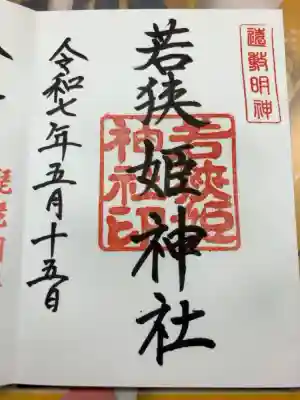 遠敷明神
若狭姫神社
若狭姫
神社印
令和七年五月十五日